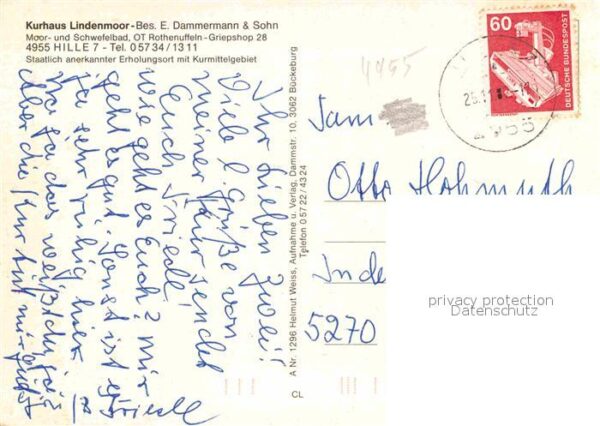 Kurhaus Lindenmoor - Bes. E. Dammermann & Sohn
Moor- und Schwefelbad, OT Rothenuffeln - Griepshop 28
4955 HILLE 7 - Tel. 05734/1311
Staatlich anerkannter Erholungsort mit Kurmittelgebiet
Ihr Lieben Zwei!
Viele l. Grüße von
meiner Kur sendet
Euch Friedl.
wie geht es Euch? mir
geht es gut. Sonst ist es
ja sehr ruhig hier
na ja das weißt du ja
Aber die Kur tut mir gut
Friedl
A Nr. 1296 Helmut Weiss, Aufnahme u. Verlag, Dammstr. 10, 3062 Bückeburg
Telefon 05722/4324
CL
4955
60
DEUTSCHE BUNDESPOST
Fam
Otto Hohmuth
Inde
5270
privacy protection
Datenschutz